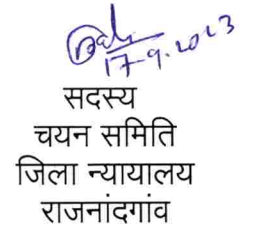 17-9.2023
सदस्य
चयन समिति
जिला न्यायालय
राजनांदगांव